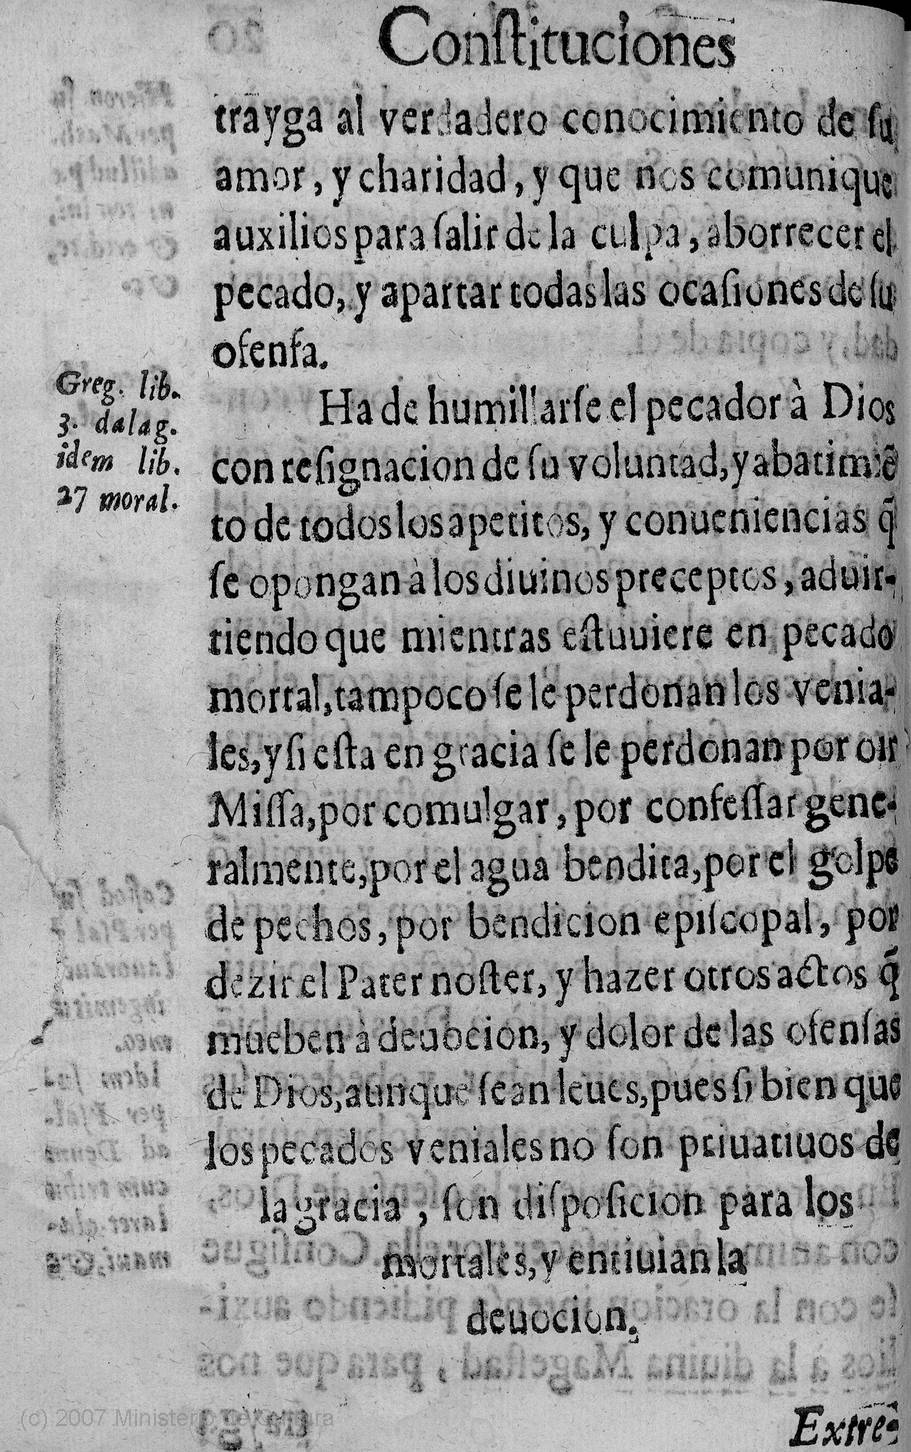 Constituciones
trayga al verdadero conocimiento de su
amor, y charidad, y que nos comunique
auxilios para salir de la culpa, aborrecer el
pecado, y apartar todas las ocasiones de su
ofensa.
Greg. lib.
3. dalag.
idem lib.
27 moral.
Ha de humillarse el pecador à Dios
con resignacion de su voluntad, y abatimiẽ
to de todos los apetitos, y conueniencias q̃
se opongan à los diuinos preceptos, aduir-
tiendo que mientras estuuiere en pecado
mortal, tampoco se le perdonan los venia-
les, y si esta en gracia se le perdonan por oir
Missa, por comulgar, por confessar gene-
ralmente, por el agua bendita, por el golpe
de pechos, por bendicion episcopal, por
dezir el Pater noster, y hazer otros actos q̃
mueben à deuocion, y dolor de las ofensas
de Dios, aunque sean leues, pues si bien que
los pecados veniales no son priuatiuos de
la gracia, son disposicion para los
mortales, y entiuian la
deuocion.
Extre-
(c) 2007 Ministerio de Cultura